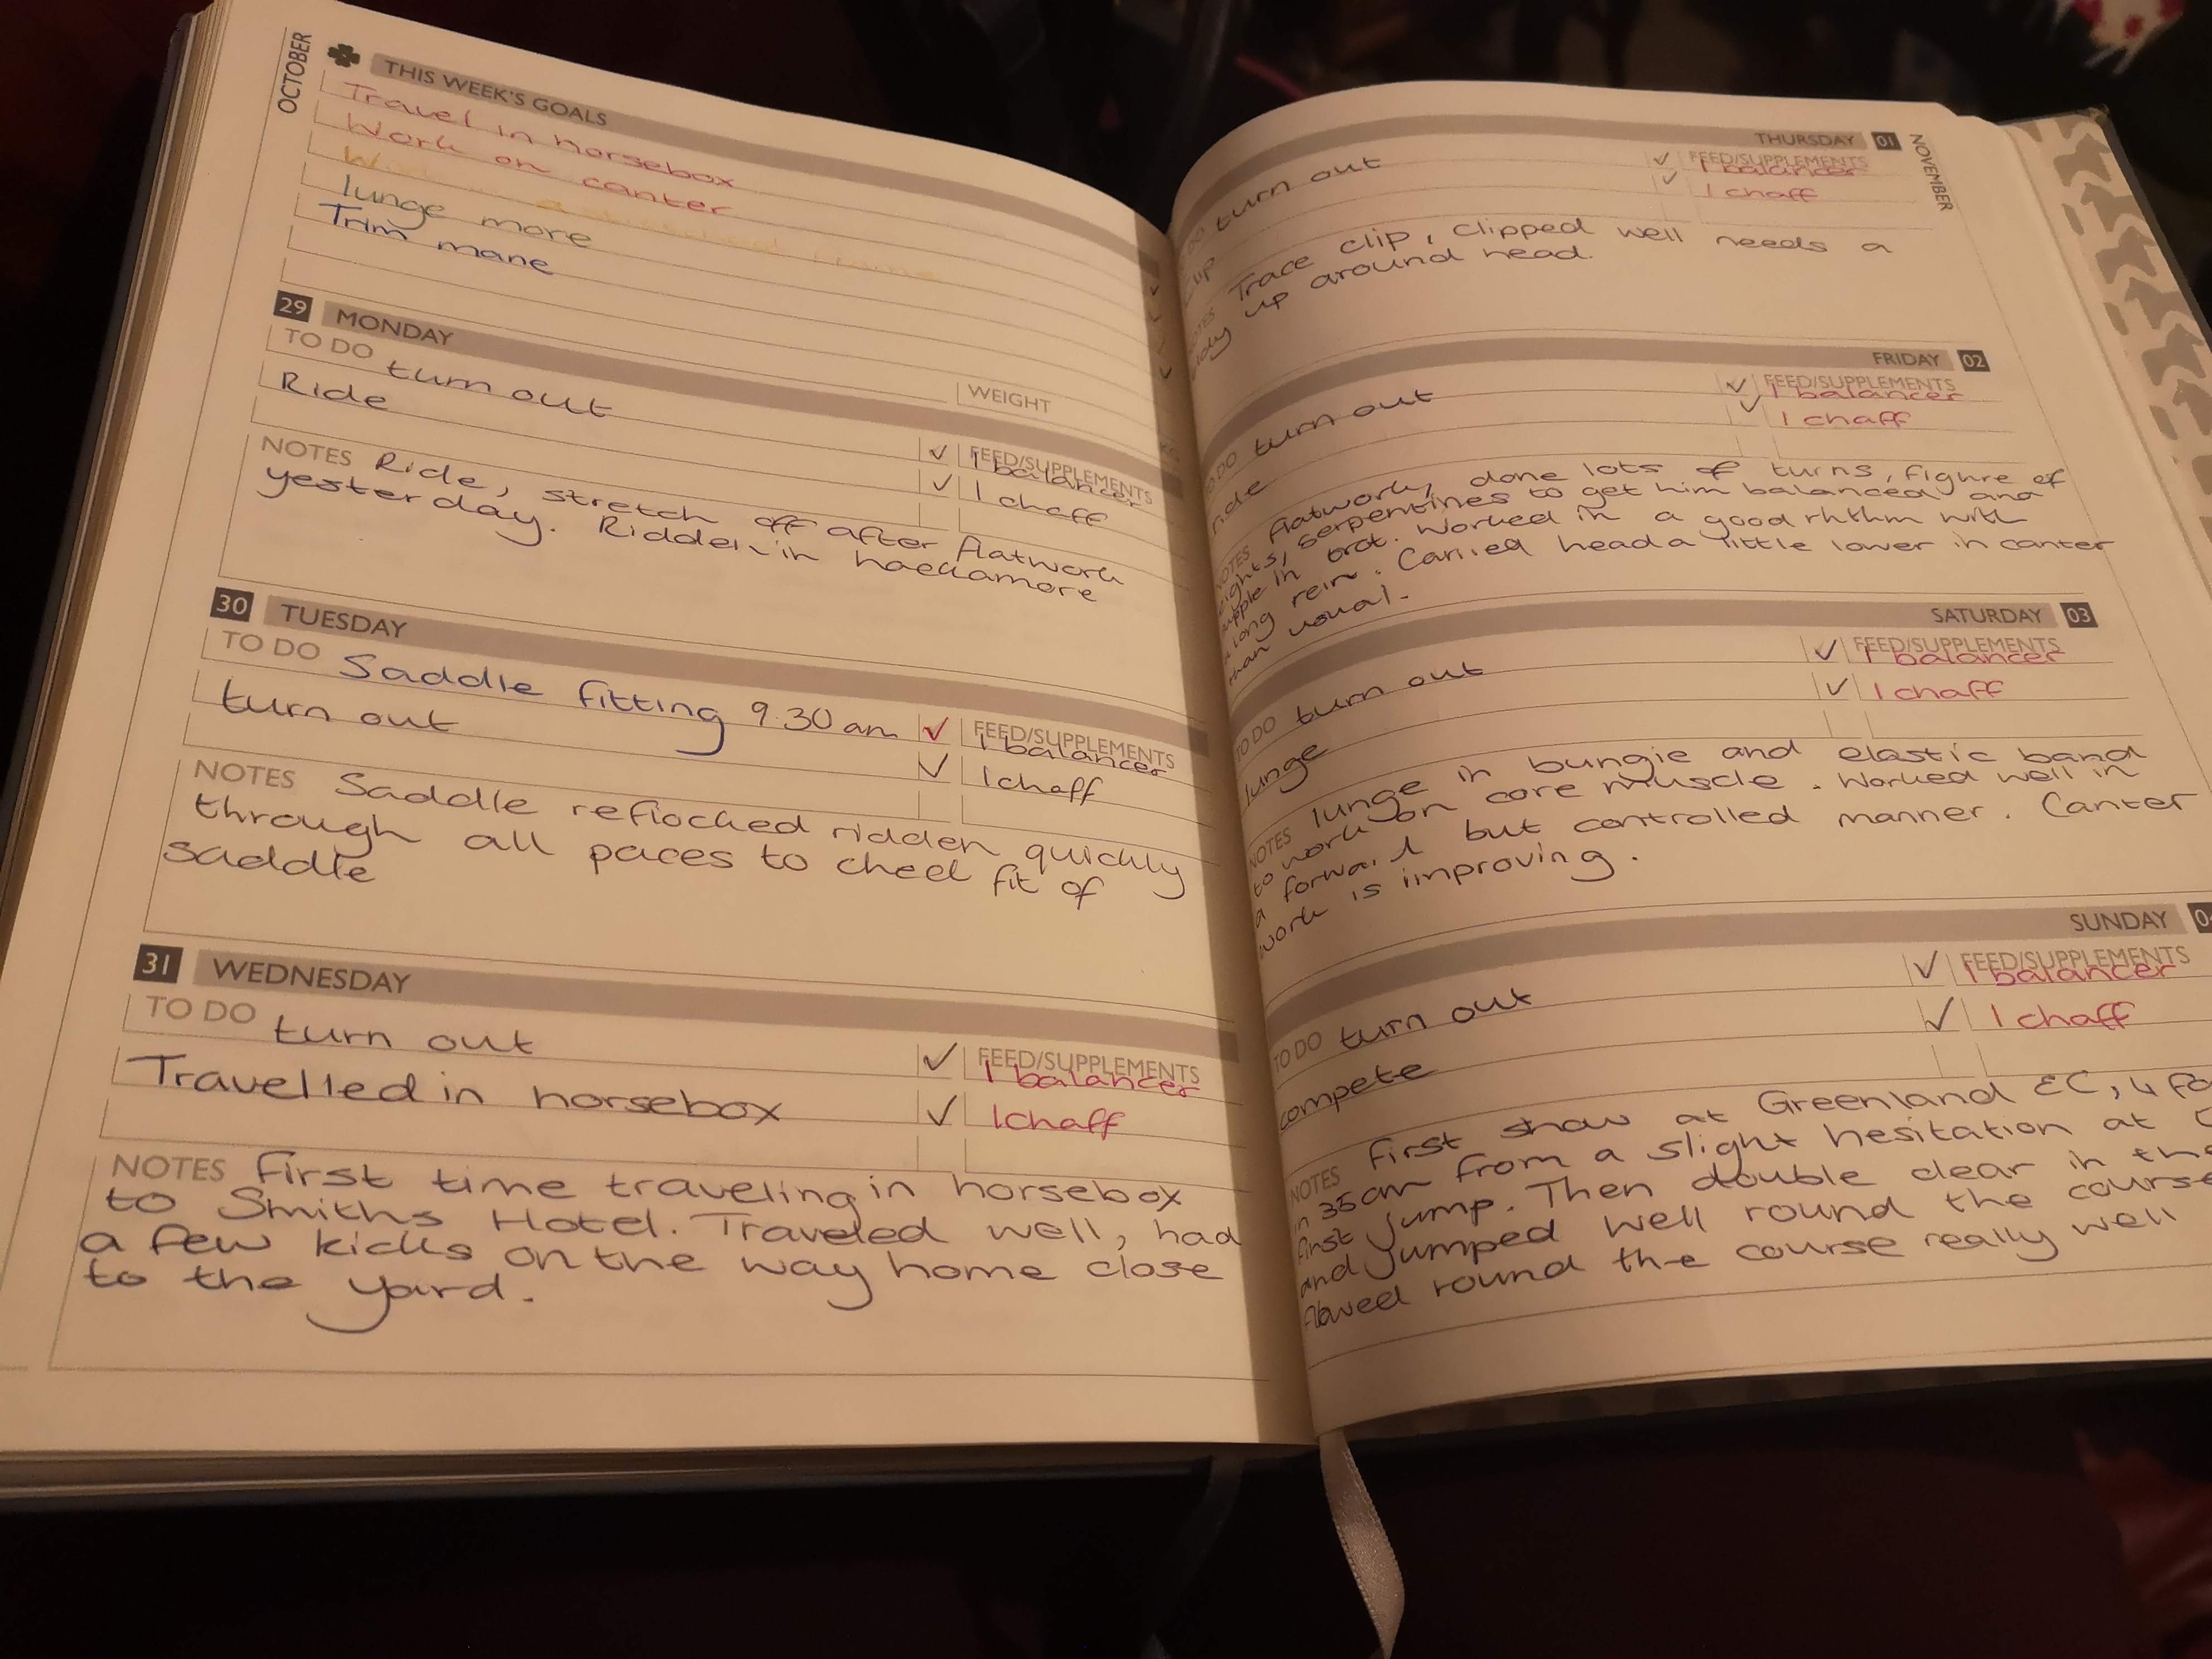 OCTOBER
THIS WEEK'S GOALS
Travel in horsebox
Work on canter
lunge more
Trim mane
29 MONDAY
TO DO turn out
WEIGHT
Ride
✓ FEED/SUPPLEMENTS
1 balancer
✓ 1 chaff
NOTES Ride, stretch off after flatwork
yesterday. Ridden in hackamore
30 TUESDAY
TO DO Saddle fitting 9.30am ✓ FEED/SUPPLEMENTS
1 balancer
turn out ✓ 1 chaff
NOTES Saddle reflocked ridden quickly
through all paces to check fit of
saddle
31 WEDNESDAY
TO DO turn out ✓ FEED/SUPPLEMENTS
1 balancer
Travelled in horsebox ✓ 1 chaff
NOTES First time traveling in horsebox
to Smiths Hotel. Traveled well, had
a few kicks on the way home close
to the yard.
NOVEMBER
THURSDAY 01
turn out ✓ FEED/SUPPLEMENTS
1 balancer
✓ 1 chaff
Trace clip, clipped well needs a
up around head.
FRIDAY 02
DO turn out ✓ FEED/SUPPLEMENTS
1 balancer
ride ✓ 1 chaff
NOTES flatwork, done lots of turns, figure of
eights, serpentines to get him balanced and
supple in trot. Worked in a good rhthm with
a long rein. Carried head a little lower in canter
than usual.
SATURDAY 03
TO DO turn out ✓ FEED/SUPPLEMENTS
1 balancer
lunge ✓ 1 chaff
NOTES lunge in bungie and elastic band
to work on core muscle. Worked well in
a forward but controlled manner. Canter
work is improving.
SUNDAY
TO DO turn out ✓ FEED/SUPPLEMENTS
1 balancer
compete ✓ 1 chaff
NOTES First show at Greenland EC, 4
in 35cm from a slight hesitation at
first jump. Then double clear in the
and jumped well round the course
flowed round the course really well